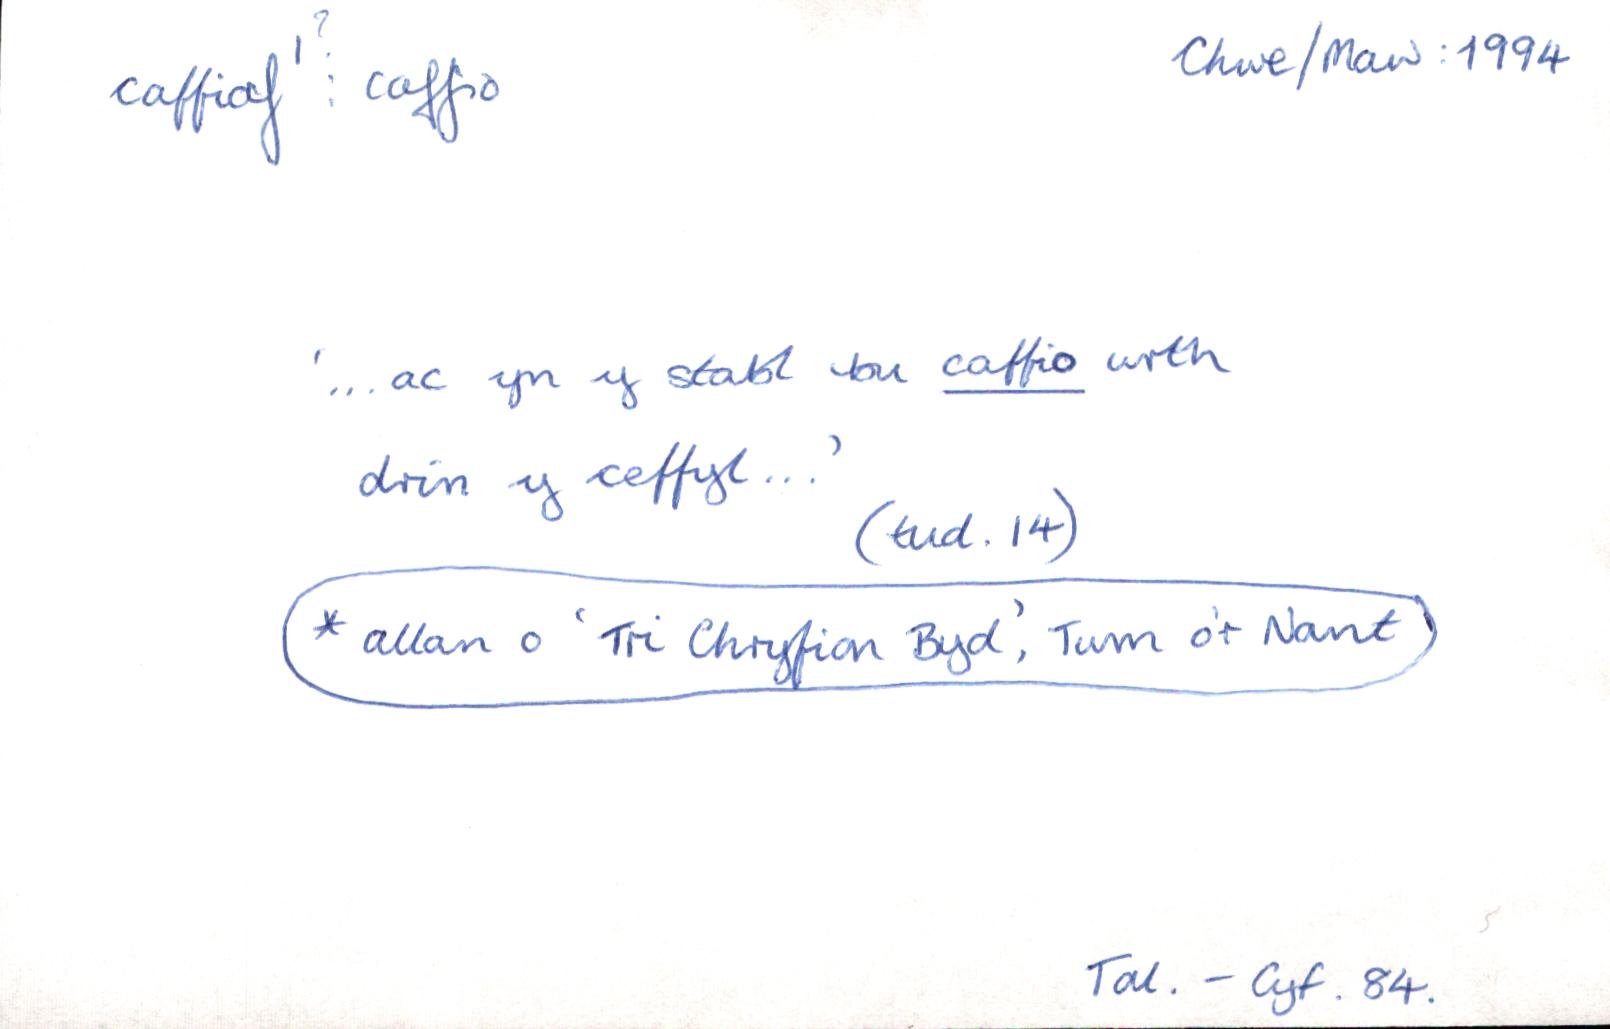 caffiaf¹? : caffio
Chwe/Maw : 1994
'...ac yn y stabl bu caffio wrth
drin y ceffyl...'
(tud. 14)
* allan o 'Tri Chryfion Byd', Twm o'r Nant
Tal. - Cyf. 84.